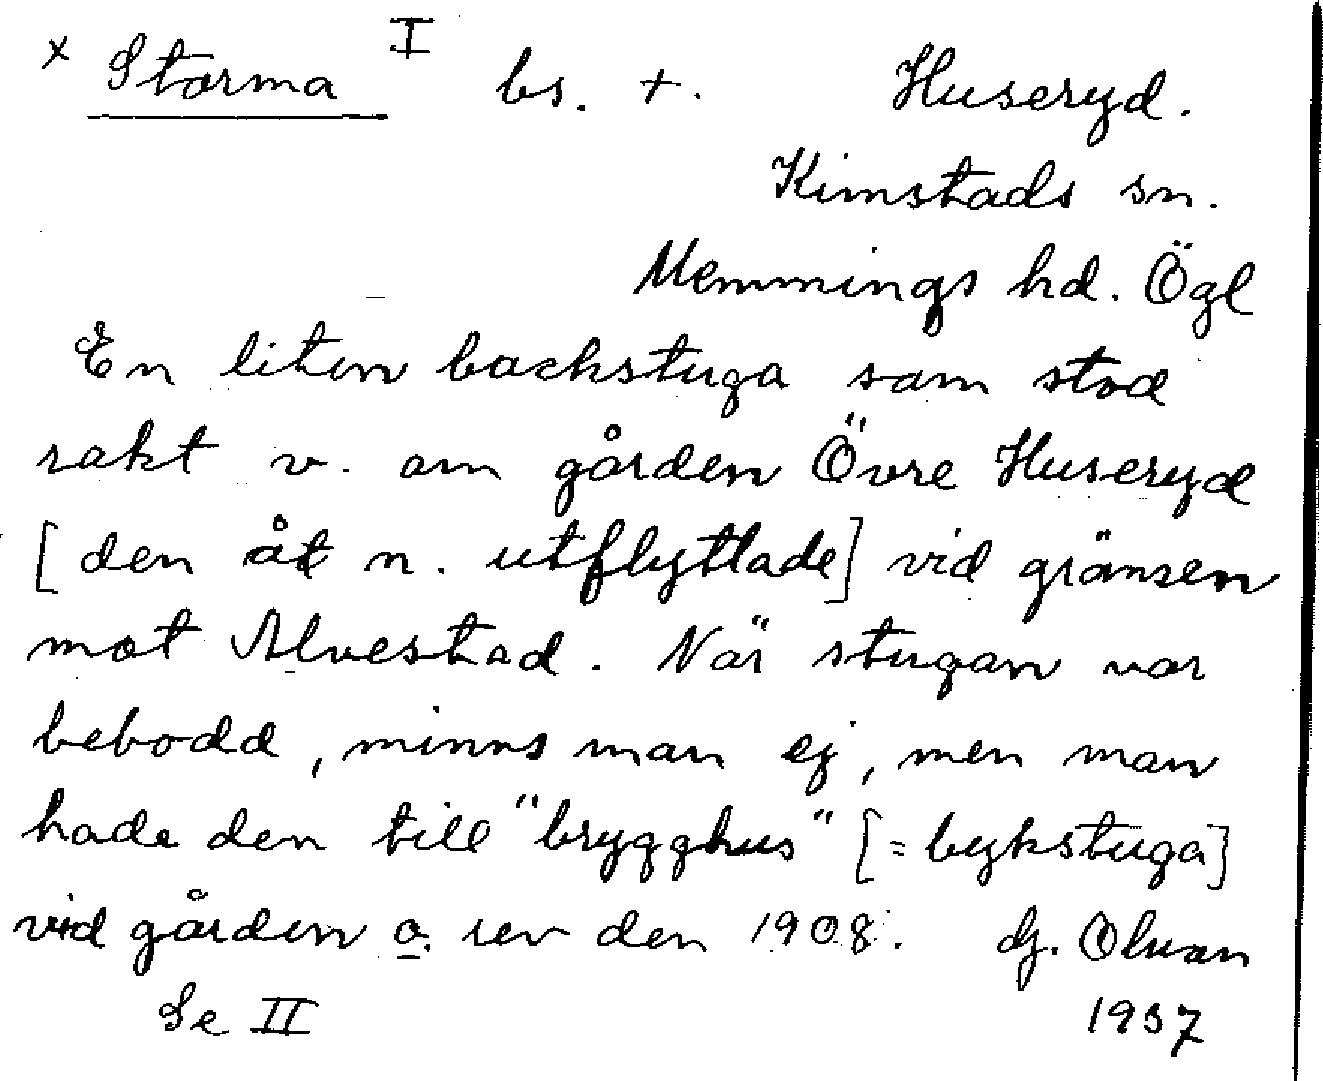 x Storma I bs. +. Huseryd.
Kimstads sn.
Memmings hd. Ögl
En liten backstuga som stod
rakt v. om gården Övre Huseryd
[den åt n. utflyttade] vid gränsen
mot Alvestad. När stugan var
bebodd, minns man ej, men man
hade den till "brygghus" [= bykstuga]
vid gården o. rev den 1908. dj.
Se II 1937